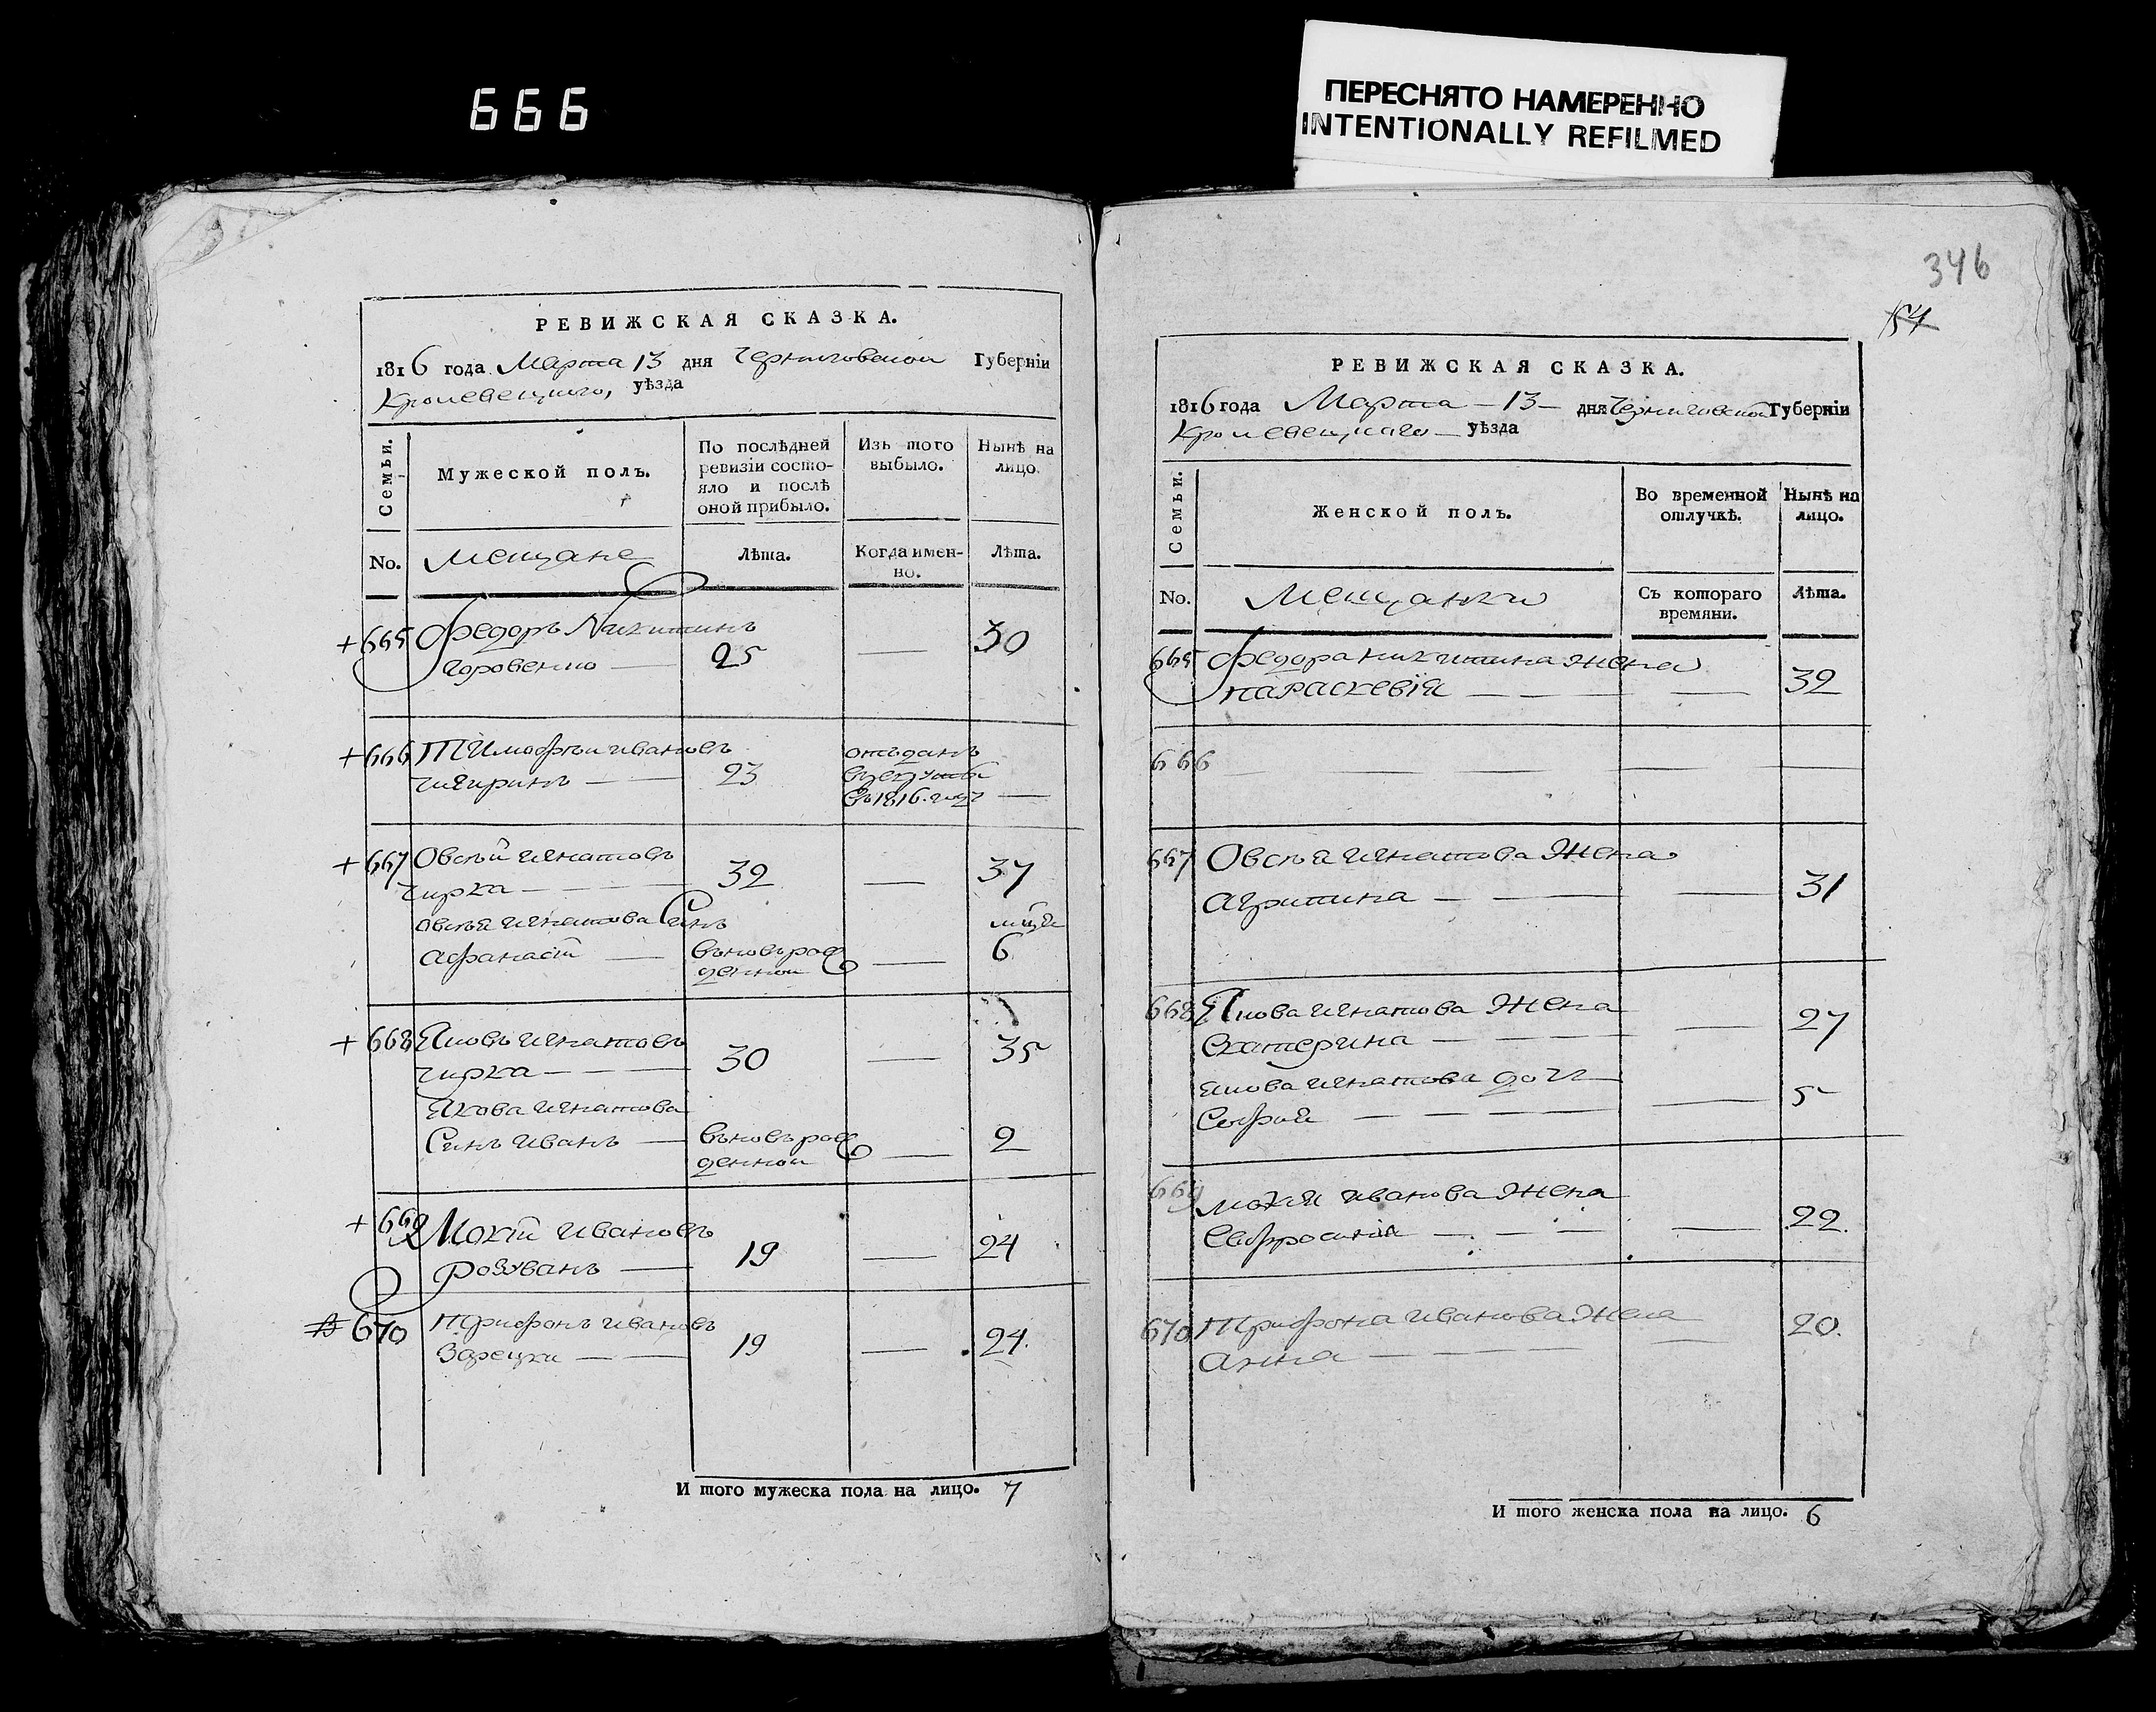 666
ПЕРЕСНЯТО НАМЕРЕННО
INTENTIONALLY REFILMED
РЕВИЖСКАЯ СКАЗКА.
1816 года Марта 13 дня Черниговской Губерніи
Кролевецкого, уѣзда
Семьи.
Мужеской полъ.
По послѣдней ревизіи состояло и послѣ оной прибыло.
Изъ того выбыло.
Нынѣ на лицо.
No.
мещане
Лѣта.
Когда именно.
Лѣта.
+665 Федоръ Никитинъ
25 — 30
+666 Тимофѣй ивановъ
чигиринъ — 23
отъданъ
въ 1816. году —
+667 Овсѣй игнатовъ
чирка — 32 — 37
овсѣя игнатова Синъ
афанасій — вьновърож
денной — 6
+668 Яковъ игнатовъ
чирка — 30 — 35
Якова игнатова
Синъ иванъ — вьновърож
денной — 2
+669 Мокій ивановъ
розуванъ — 19 — 24
670 трифонъ ивановъ
Зарецки — 19 — 24.
И того мужеска пола на лицо. 7
346
54
РЕВИЖСКАЯ СКАЗКА.
1816 года Марта — 13 — дня Черниговской Губерніи
Кролевецкаго — уѣзда
Семьи.
Женской полъ.
Во временной отлучкѣ.
Нынѣ на лицо.
No.
Мещанки
Съ котораго времяни.
Лѣта.
665 Федора никитина жена
параскевія — — — 32
666 — — — — —
667 Овсѣя игнатова Жена
агрипина — — — 31
668 Якова игнатова Жена
Екатерина — — — 27
якова игнатова дочь
София — — — — 5
669 мокия иванова Жена
Евфросинія — — — 22.
670 Трифона иванова Жена
анна — — — — 20.
И того женска пола на лицо. 6